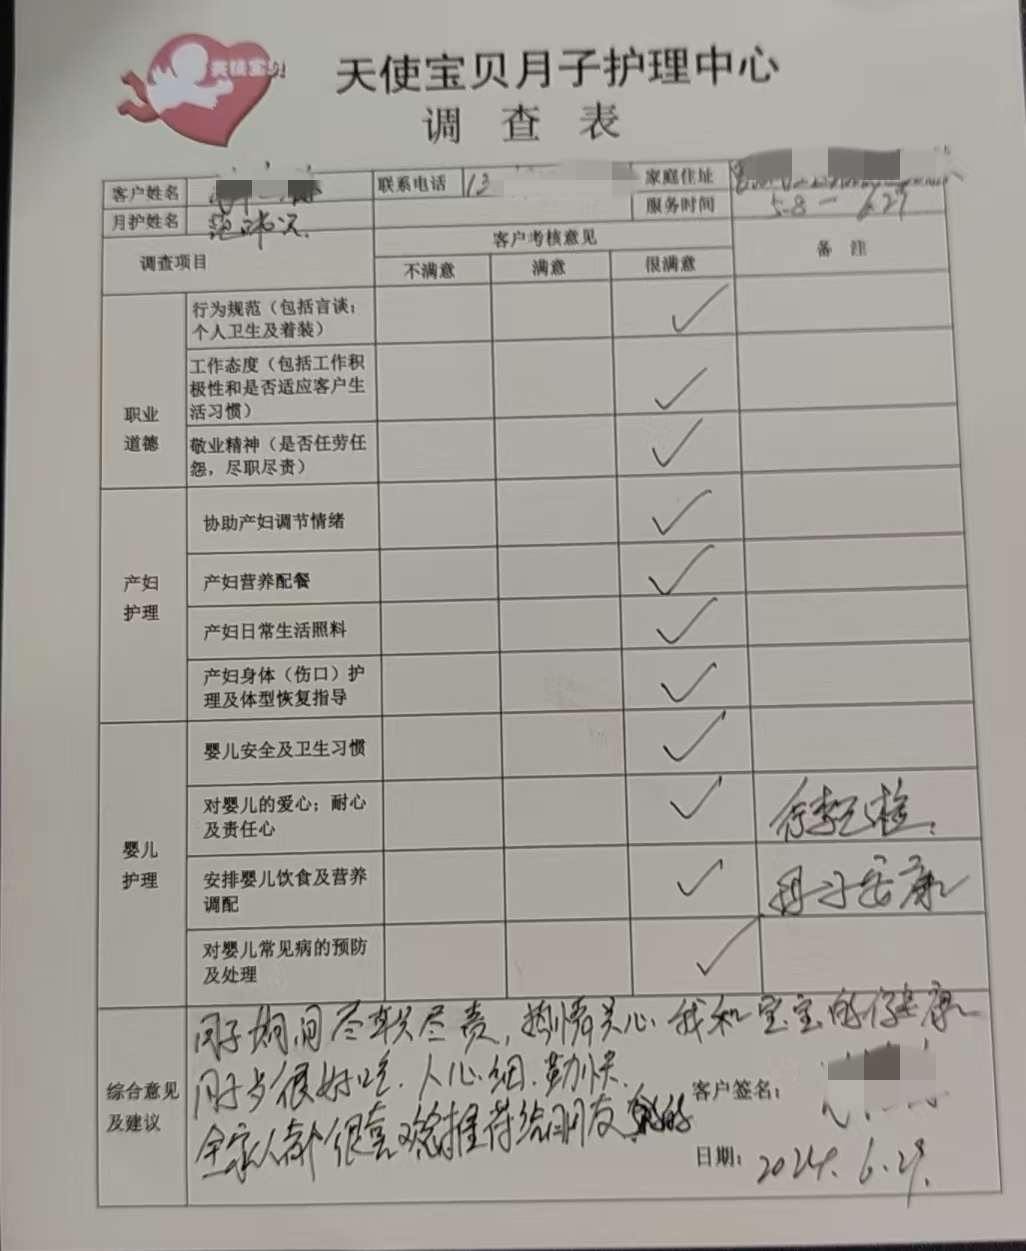 天使宝贝
天使宝贝月子护理中心
调查表
客户姓名 联系电话 13 家庭住址
月护姓名 范 服务时间 5.8-6.27
调查项目 客户考核意见 备注
不满意 满意 很满意
职业道德
行为规范（包括言谈；
个人卫生及着装）
工作态度（包括工作积
极性和是否适应客户生
活习惯）
敬业精神（是否任劳任
怨，尽职尽责）
产妇护理
协助产妇调节情绪
产妇营养配餐
产妇日常生活照料
产妇身体（伤口）护
理及体型恢复指导
婴儿护理
婴儿安全及卫生习惯
对婴儿的爱心；耐心
及责任心 行李已检.
安排婴儿饮食及营养
调配 母子安康
对婴儿常见病的预防
及处理
综合意见
及建议
月子期间尽职尽责，热情关心我和宝宝的健康
月子歺很好吃.人心细.勤快.
全家人都很喜欢推荐给朋友
客户签名：
日期：2024.6.27.